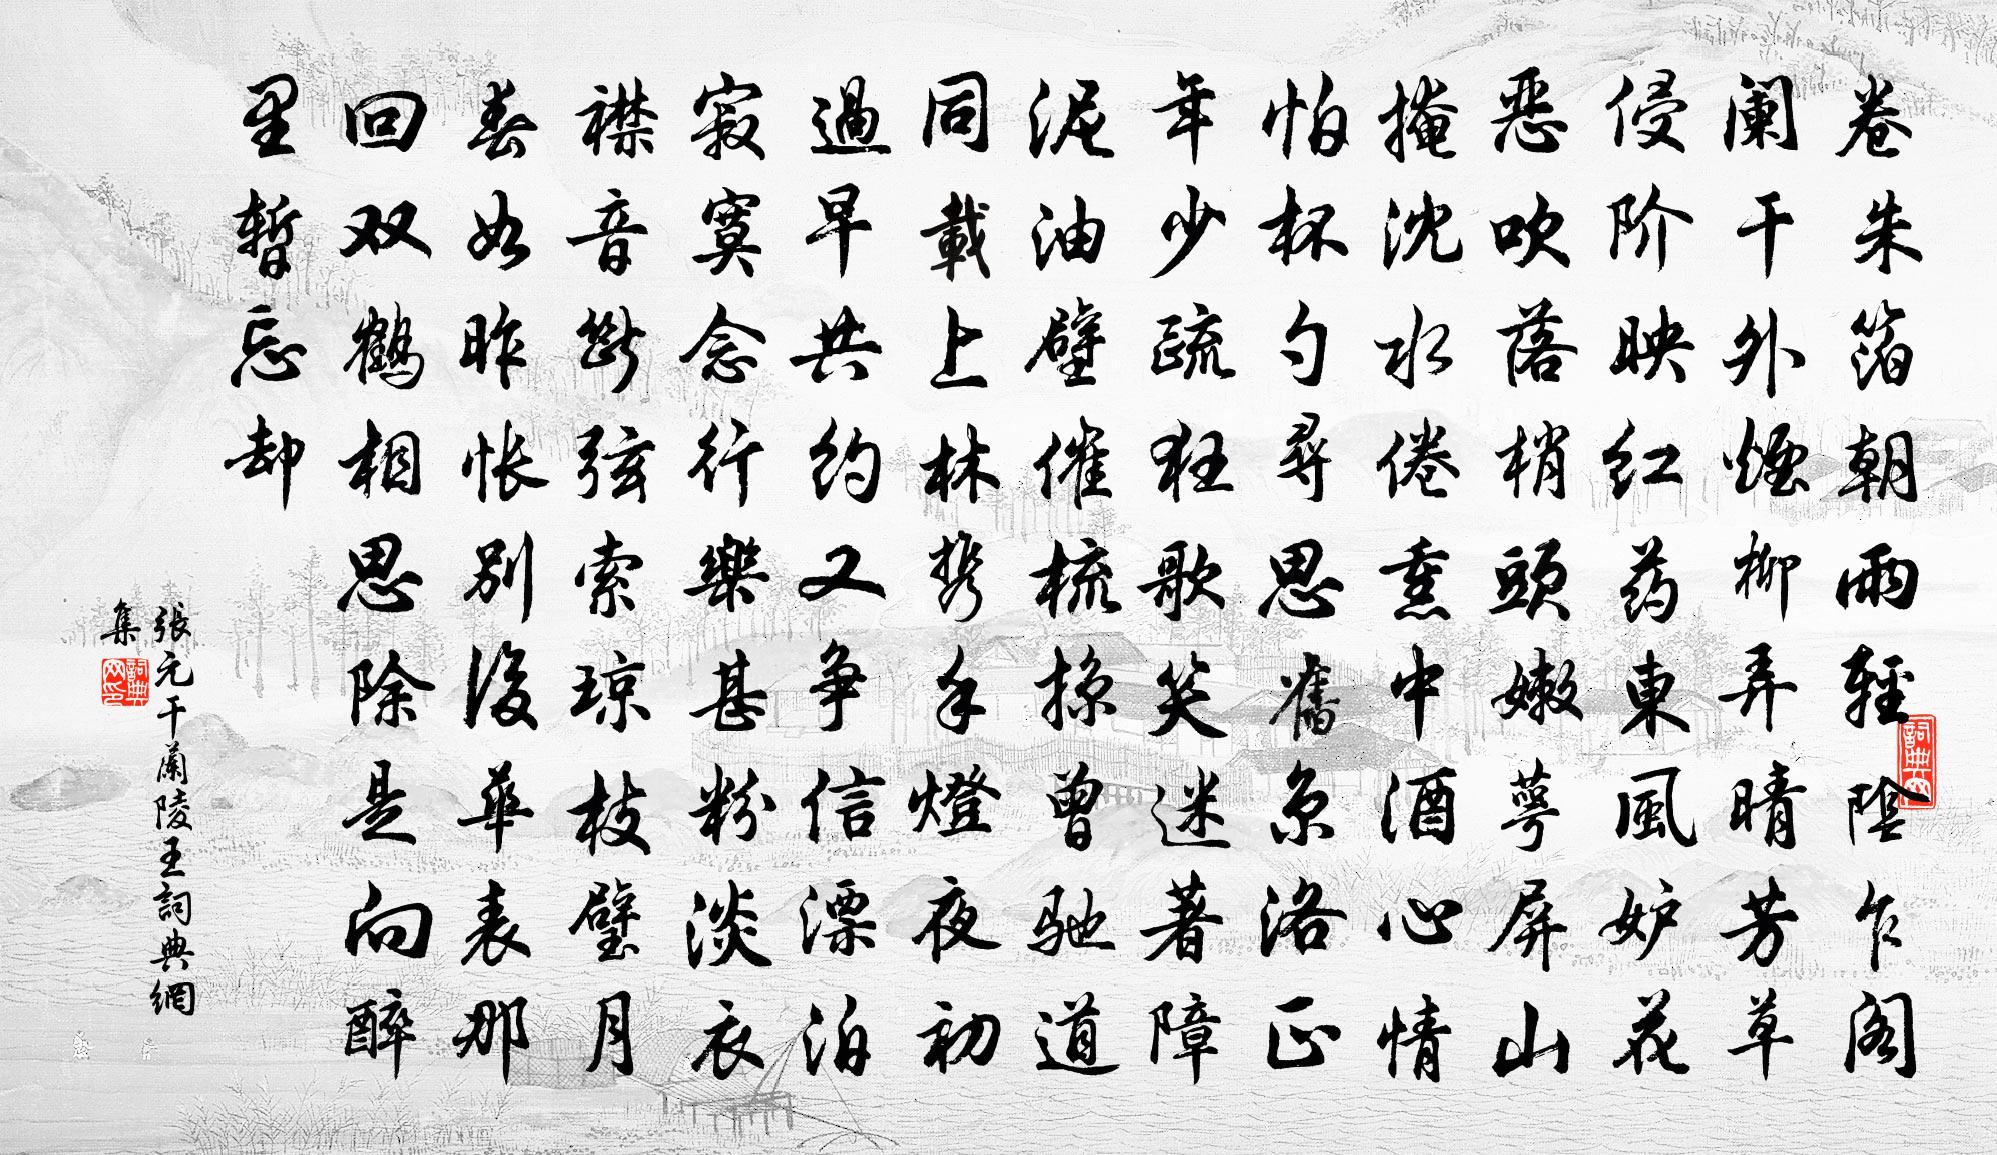 卷朱箔朝雨輕陰乍阁
阑干外煙柳弄晴芳草
侵阶映红药東風妒花
恶吹落梢頭嫩萼屏山
掩沈水倦熏中酒心情
怕杯勺尋思舊京洛正
年少疏狂歌笑迷著障
泥油壁催梳掠曾驰道
同載上林携手燈夜初
過早共約又争信漂泊
寂寞念行樂甚粉淡衣
襟音斷弦索琼枝璧月
春如昨怅别後華表那
回双鶴相思除是向醉
里暫忘却
張元干蘭陵王詞典網
集
詞典網
詞典網印